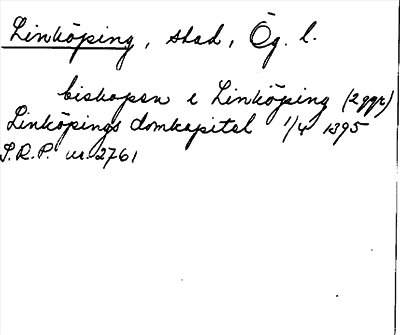 Linköping, stad, Ög. l.
biskopen i Linköping (2 ggr)
Linköpings domkapitel 1/4 1395
S.R.P. nr. 2761